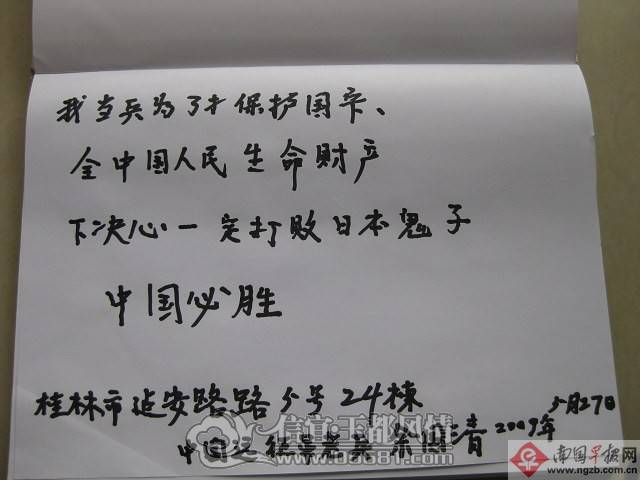 我当兵为了才保护国家、
全中国人民生命财产
下决心一定打败日本鬼子
中国必胜
桂林市延安路路5号24栋
5月27日
中国远征军老兵 国清 2009年
信宜玉都风情
www.03681.com
南国早报网
www.ngzb.com.cn